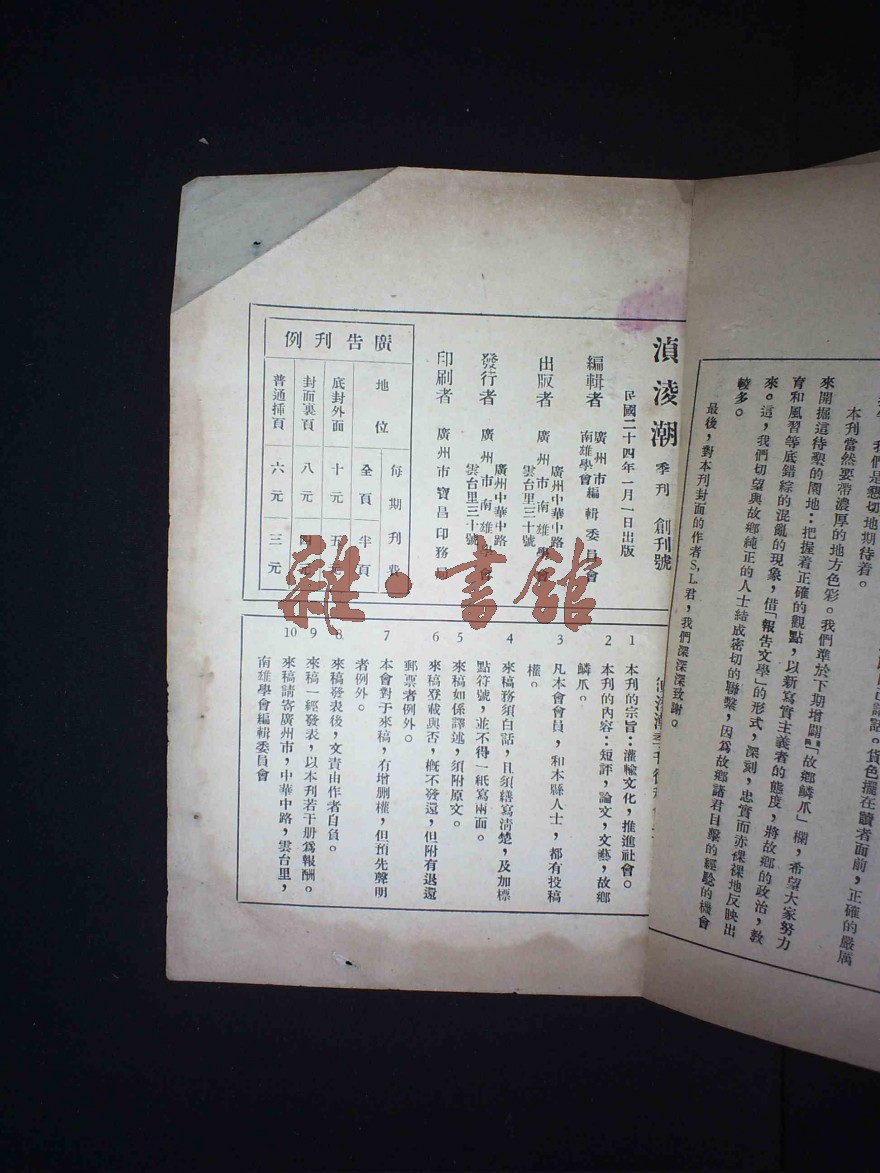 本刊當然要帶濃厚的地方色彩。我們準於下期增闢「故鄉鱗爪」欄,希望大家努力
來開掘這待墾的園地:把握着正確的觀點,以新寫實主義者的態度,將故鄉的政治,教
育和風習等底錯綜的混亂的現象,借「報告文學」的形式,深刻,忠實而赤裸裸地反映出
來。這,我們切望與故鄉純正的人士結成密切的聯繫,因爲故鄉諸君目擊的經驗的機會
較多。
最後,對本刊封面的作者S.L.君,我們深深深致謝。
湞淩潮 季刊 創刊號
民國二十四年一月一日出版
編輯者 廣州市南雄學會編輯委員會
出版者 廣州市南雄學會
廣州中華中路雲台里三十號
發行者 廣州市南雄學會
廣州中華中路雲台里三十號
印刷者 廣州市寶昌印務局
廣告刊例
地位 每期刊費
全頁 半頁
底封外面 十元 五元
封面裏頁 八元 四元
普通插頁 六元 三元
1 本刊的宗旨:灌輸文化,推進社會。
2 本刊的內容:短評,論文,文藝,故鄉
鱗爪。
3 凡本會會員,和本縣人士,都有投稿
權。
4 來稿務須白話,且須繕寫清楚,及加標
點符號,並不得一紙寫兩面。
5 來稿如係譯述,須附原文。
6 來稿登載與否,概不發還,但附有退還
郵票者例外。
7 本會對于來稿,有增删權,但預先聲明
者例外。
8 來稿發表後,文責由作者自負。
9 來稿一經發表,以本刊若干册爲報酬。
10 來稿請寄廣州市,中華中路,雲台里,
南雄學會編輯委員會
雜·書館